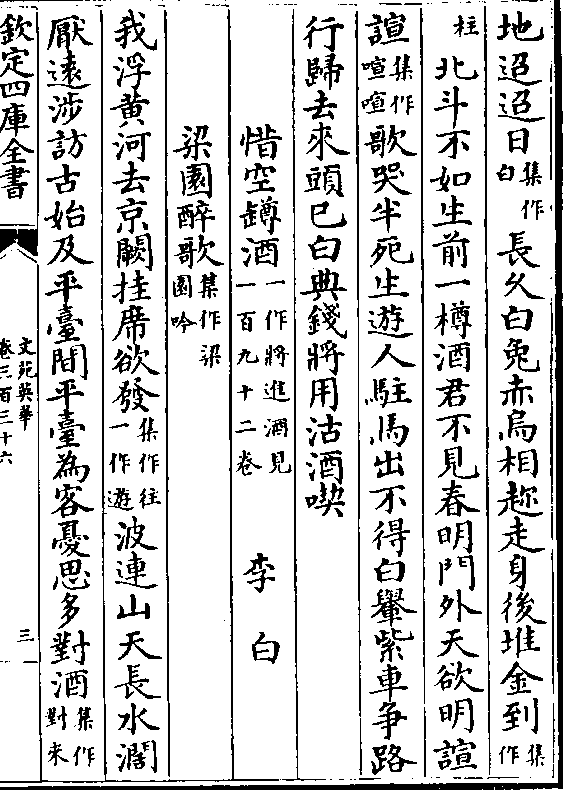 地迢迢日集作白長久白兔赤烏相趂走身後堆金到集作
柱北斗不如生前一樽酒君不見春明門外天欲明諠
諠集作喧喧歌哭半死生遊人駐馬出不得白轝紫車争路
行歸去來頭已白典錢將用沽酒喫
惜空罇酒一作將進酒見一百九十二卷 李白
梁園醉歌集作梁園吟
我浮黄河去京闕挂席欲發集作往一作遊波連山天長水濶
厭遠涉訪古始及平臺間平臺為客憂思多對酒集作對來
欽定四庫全書 文苑英華 卷三百三十六 三